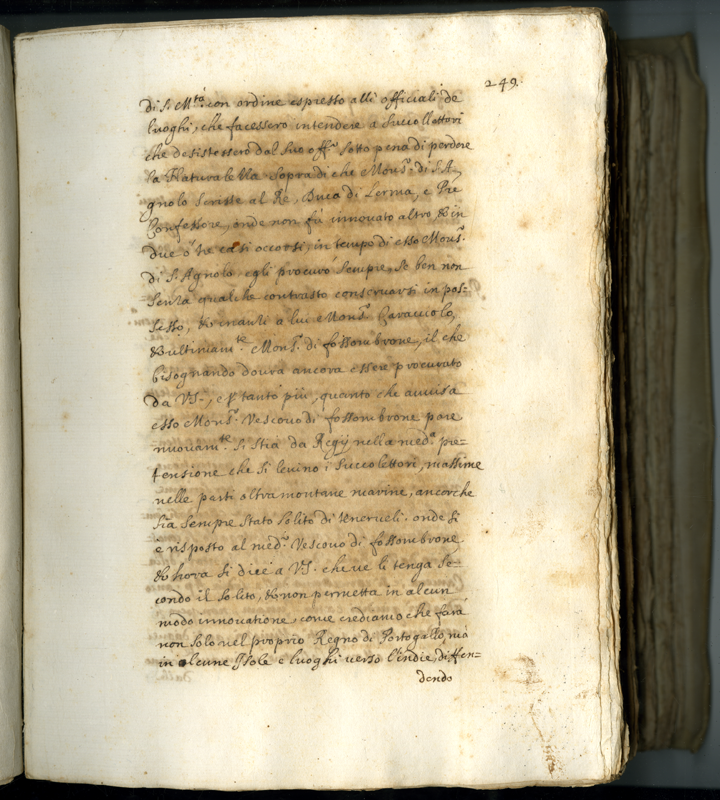 249.
di S. M.tà con ordine espresso alli officiali de
luoghi, che facessero intendere a Succollettori
che desistessero dal suo off.o sotto pena di perdere
la Naturalezza. Sopra di che Mons.r di S. A-
gnolo scrisse al Re, Duca di Lerma, e Pre
Confessore, onde non fù innovato altro, & in
due ò tre casi occorsi, in tempo di esso Mons.r
di S. Agnolo, egli procurò sempre, se ben non
senza qualche contrasto conservarsi in pos-
sesso, à lui Mons.r Caracciolo,
& ultimam.te Mons.r di fossombrone, il che
bisognando dovrà ancora essere procurato
da VS., e tanto più, quanto che avvisa
esso Mons.r Vescovo di fossombrone pare
nuovam.te si stia da Regij nella med.a pre-
tensione che si levino i Succolettori, massime
nelle parti oltramontane marine, ancorche
sia sempre stato solito di tenerveli. onde si
è risposto al med.o Vescovo di fossombrone
& hora si dice à VS. che ve li tenga se-
condo il solito, & non permetta in alcun
modo innovatione, come crediamo che farà
non solo nel proprio Regno di Portogallo, mà
in alcune Isole e luoghi verso l'indie, diffen-
dendo